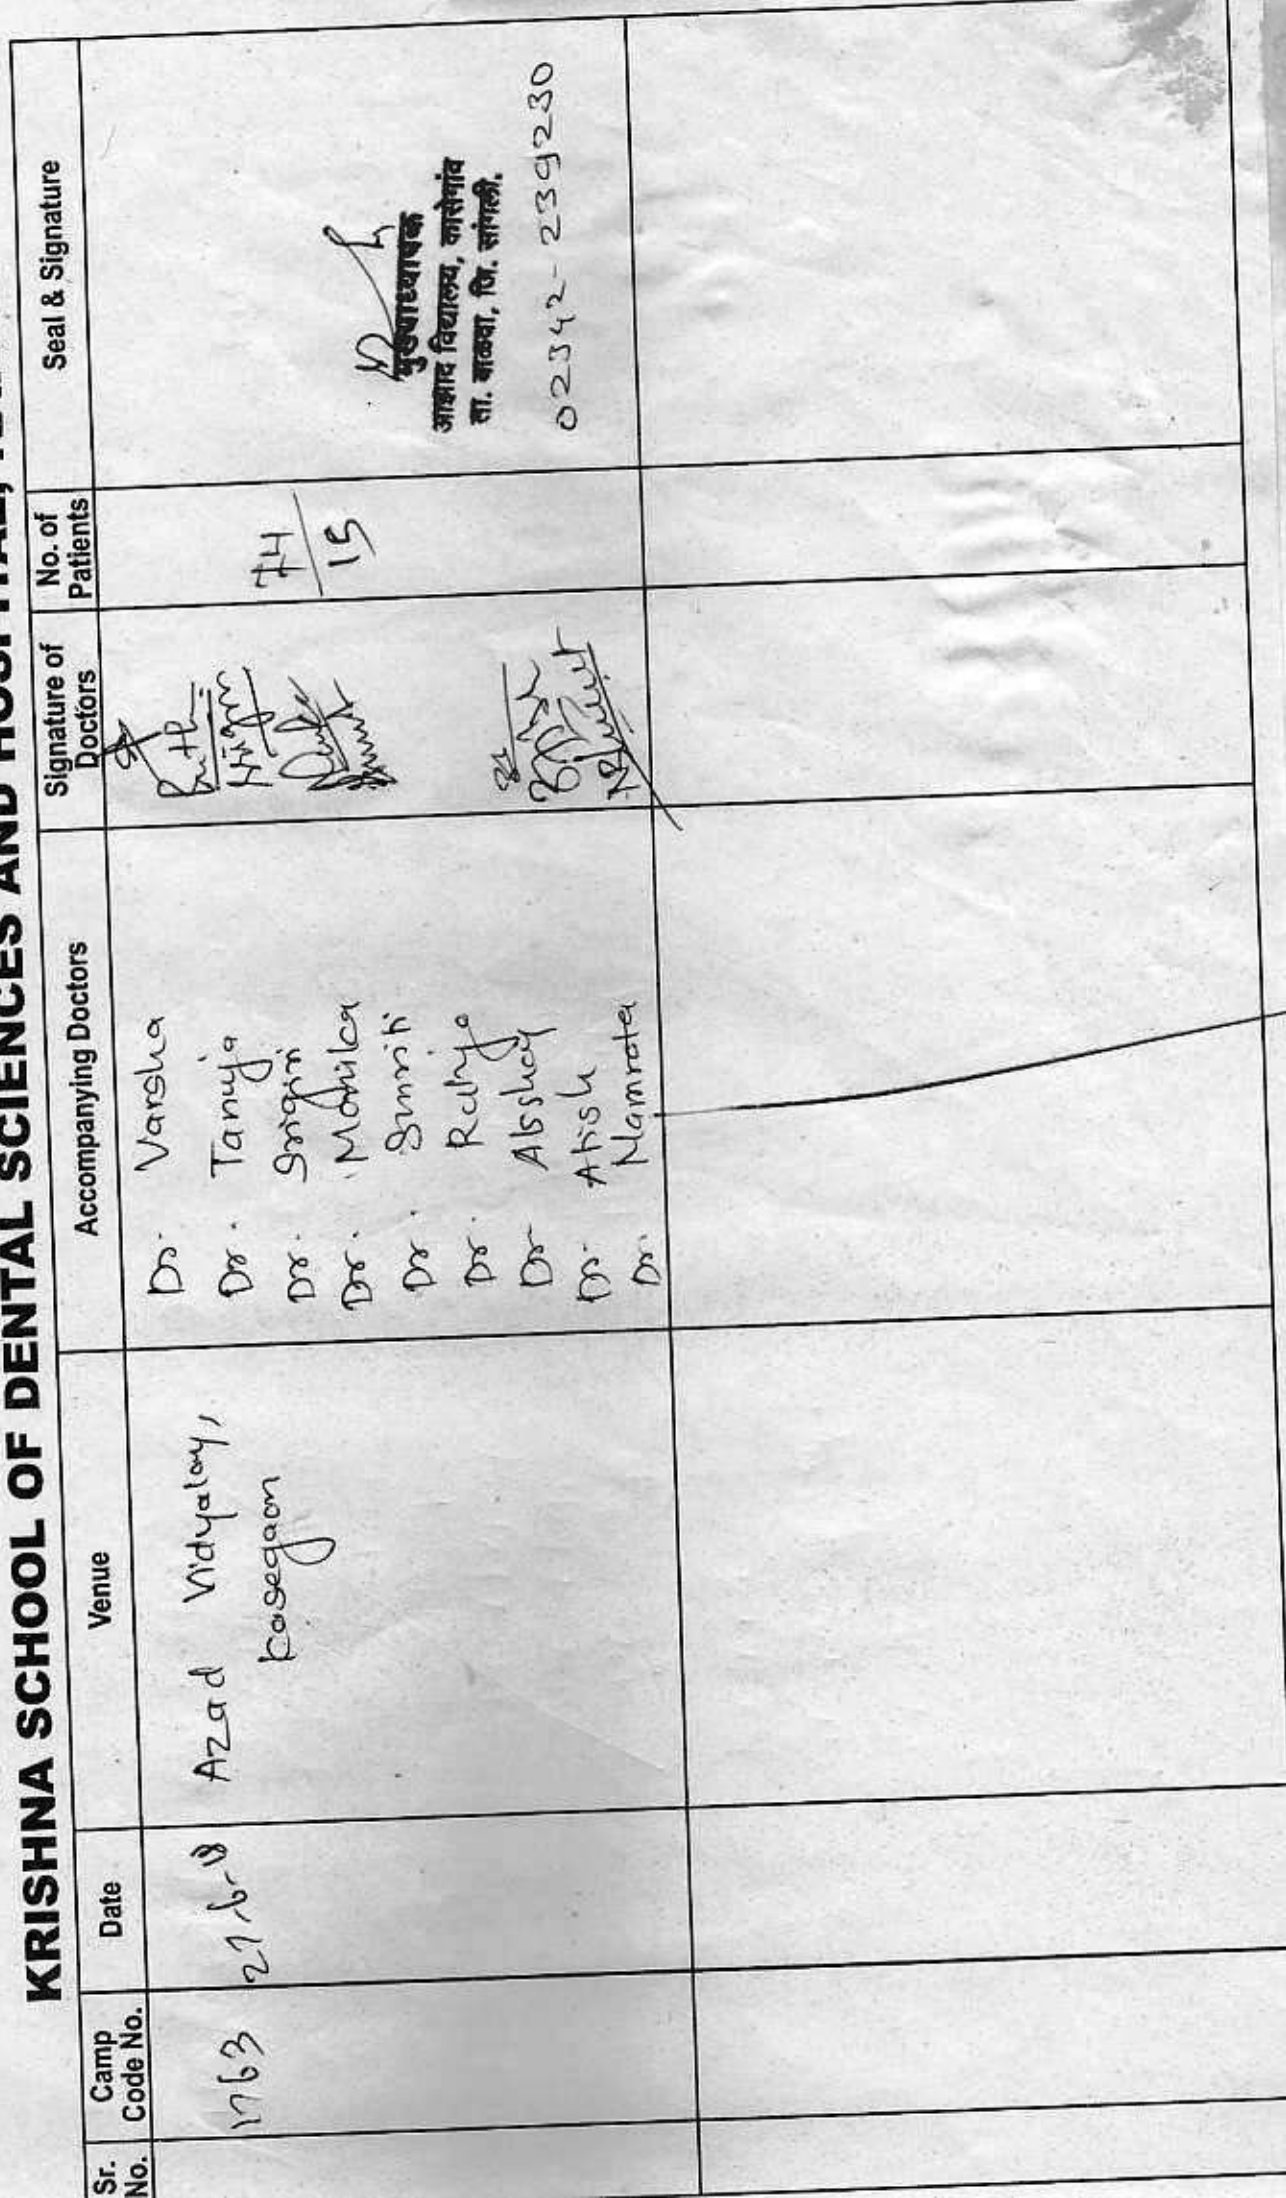 KRISHNA SCHOOL OF DENTAL SCIENCES AND HOSPITAL,
Sr. No.
Camp Code No.
Date
Venue
Accompanying Doctors
Signature of Doctors
No. of Patients
Seal & Signature
1763
27-6-18
Azad Vidyalay,
Kasegaon
Dr. Varsha
Dr. Tanuja
Dr. Srigiri
Dr. Monika
Dr. Smriti
Dr.
Dr. Akshay
Dr. Atish
Dr. Namrata
74
15
मुख्याध्यापक
आझाद विद्यालय, कासेगांव
ता. वाळवा, जि. सांगली.
02342-239230